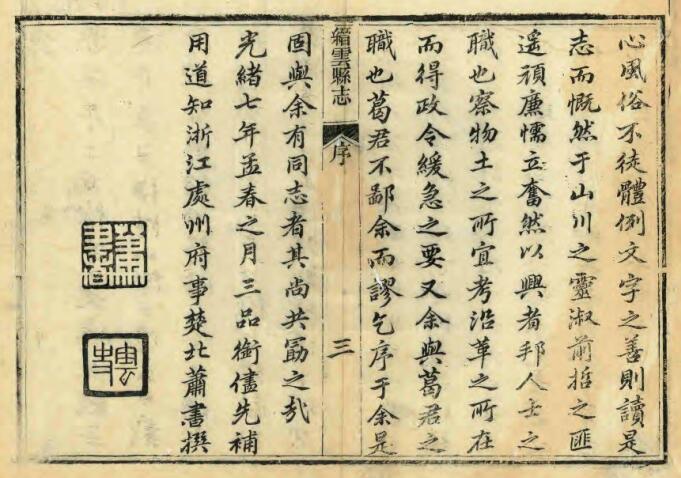 心風俗不徒體例文字之善則讀是
志而慨然于山川之靈淑前哲之匪
遥頑廉懦立奮然以興者邦人士之
職也察物土之所宜考沿革之所在
而得政令緩急之要又余與葛君之
職也葛君不鄙余而謬乞序于余是
縉雲縣志
序
三
固與余有同志者其尚共勖之哉
光緒七年孟春之月三品銜儘先補
用道知浙江處州府事楚北蕭書撰
蕭書